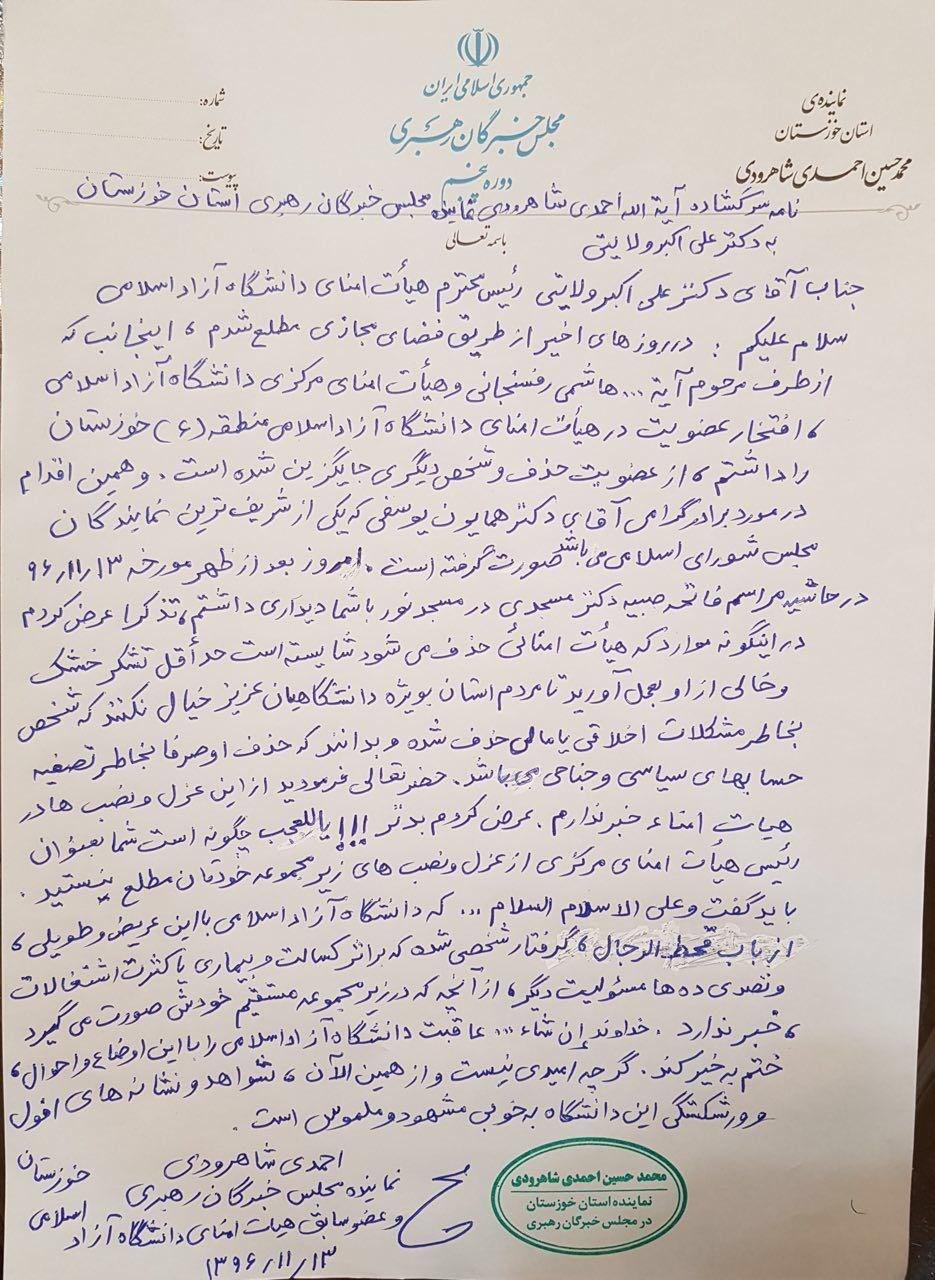 جمهوری اسلامی ایران
مجلس خبرگان رهبری
دوره پنجم
نماینده‌ی
استان خوزستان
محمدحسین احمدی شاهرودی
شماره:
تاریخ:
پیوست:
نامه سرگشاده آیة الله احمدی شاهرودی نماینده مجلس خبرگان رهبری استان خوزستان
به دکتر علی اکبر ولایتی
باسمه تعالی
جناب آقای دکتر علی اکبر ولایتی رئیس محترم هیأت امنای دانشگاه آزاد اسلامی
سلام علیکم : در روزهای اخیر از طریق فضای مجازی مطلع شدم ، اینجانب که
از طرف مرحوم آیة ... هاشمی رفسنجانی و هیأت امنای مرکزی دانشگاه آزاد اسلامی
، افتخار عضویت در هیأت امنای دانشگاه آزاد اسلامی منطقه (۶) خوزستان
را داشتم ، از عضویت حذف و شخص دیگری جایگزین شده است . و همین اقدام
در مورد برادر گرامی آقای دکتر همایون یوسفی که یکی از شریف ترین نمایندگان
مجلس شورای اسلامی می باشد صورت گرفته است . امروز بعد از ظهر مورخه ۹۶/۱۱/۱۳
در حاشیه مراسم فاتحه صبیه دکتر مسجدی در مسجد نور با شما دیداری داشتم ، تذکراً عرض کردم
در اینگونه موارد که هیأت امنائی حذف می شود شایسته است حدأقل تشکر خشک
و خالی از او بعمل آورید تا مردم استان بویژه دانشگاهیان عزیز خیال نکنند که شخص
بخاطر مشکلات اخلاقی یا مالی حذف شده و بدانند که حذف او صرفا بخاطر تصفیه
حسابهای سیاسی و جناحی می باشد . حضرتعالی فرمودید از این عزل و نصب ها در
هیات امناء خبر ندارم . عرض کردم بدتر !!! یاللعجب چگونه است شما بعنوان
رئیس هیأت امنای مرکزی از عزل و نصب های زیر مجموعه خودتان مطلع نیستید .
باید گفت وعلی الاسلام السلام ... که دانشگاه آزاد اسلامی با این عریض و طویلی ،
از باب قحط الرجال ، گرفتار شخصی شده که بر اثر کسالت و بیماری یا کثرت اشتغالات
و تصدی ده ها مسئولیت دیگر ، از آنچه که در زیر مجموعه مستقیم خودش صورت می گیرد
، خبر ندارد . خداوند إن شاء ... عاقبت دانشگاه آزاد اسلامی را با این اوضاع و احوال ،
ختم به خیر کند . گرچه امیدی نیست و از همین الآن ، شواهد و نشانه های افول
و ورشکستگی این دانشگاه به خوبی مشهود و ملموس است .
احمدی شاهرودی
نماینده مجلس خبرگان رهبری خوزستان
و عضو سابق هیات امنای دانشگاه آزاد اسلامی
۱۳۹۶/۱۱/۱۳
محمد حسین احمدی شاهرودی
نماینده استان خوزستان
در مجلس خبرگان رهبری